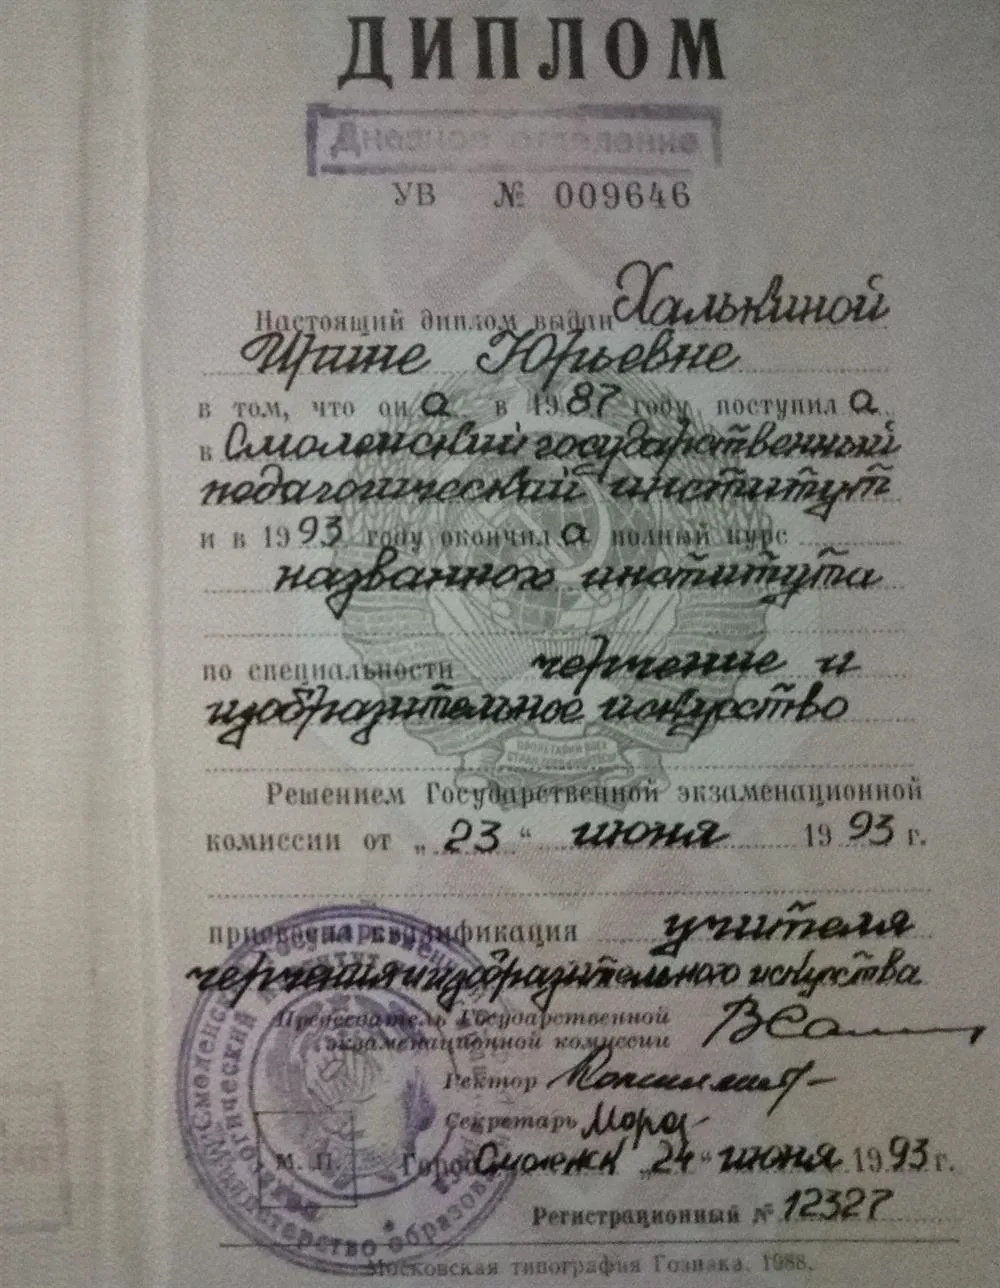 ДИПЛОМ
Дневное отделение
УВ № 009646
Настоящий диплом выдан Халькиной
Ирине Юрьевне
в том, что он а в 1987 году поступил а
в Смоленский государственный
педагогический институт
и в 1993 году окончил а полный курс
названного института
по специальности черчение и
изобразительное искусство
ПРОЛЕТАРИИ ВСЕХ
СТРАН, СОЕДИНЯЙТЕСЬ
Решением Государственной экзаменационной
комиссии от „ 23 “ июня 1993 г.
присвоена квалификация учителя
черчения и изобразительного искусства
Председатель Государственной
экзаменационной комиссии
Ректор
Секретарь
М. П. Город Смоленск „24“ июня 1993 г.
Регистрационный № 12327
Московская типография Гознака. 1988.
Министерство образования
Смоленский государственный
педагогический институт